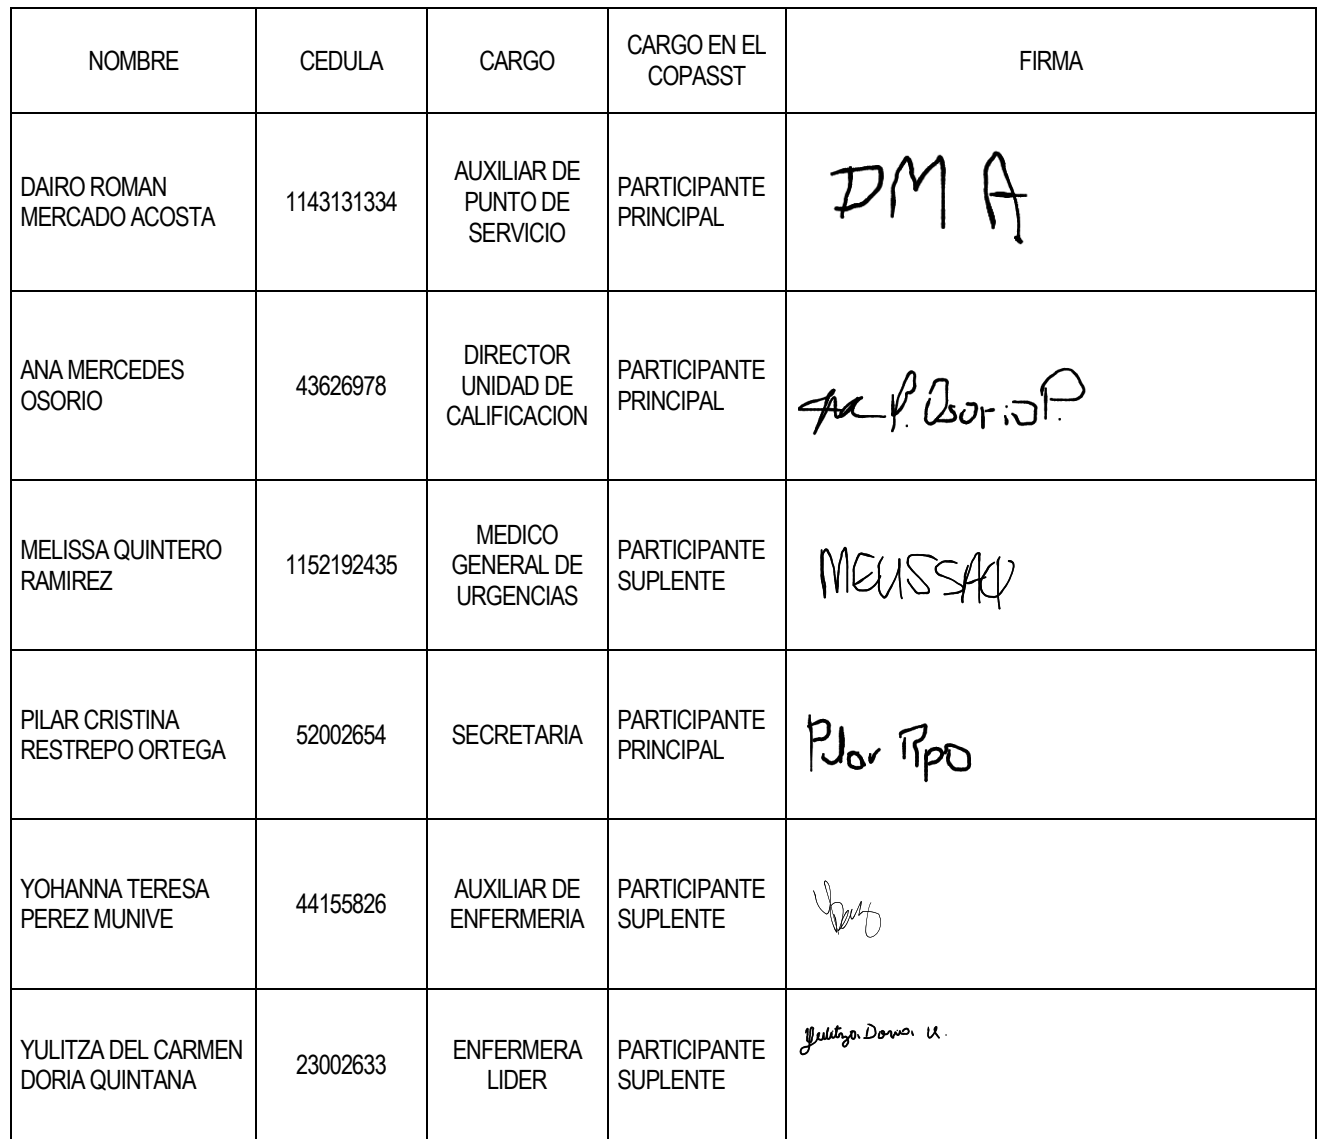 NOMBRE
CEDULA
CARGO
CARGO EN EL
COPASST
FIRMA
DAIRO ROMAN
MERCADO ACOSTA
1143131334
AUXILIAR DE
PUNTO DE
SERVICIO
PARTICIPANTE
PRINCIPAL
DMA
ANA MERCEDES
OSORIO
43626978
DIRECTOR
UNIDAD DE
CALIFICACION
PARTICIPANTE
PRINCIPAL
P. Osorio P.
MELISSA QUINTERO
RAMIREZ
1152192435
MEDICO
GENERAL DE
URGENCIAS
PARTICIPANTE
SUPLENTE
MELISSAQ
PILAR CRISTINA
RESTREPO ORTEGA
52002654
SECRETARIA
PARTICIPANTE
PRINCIPAL
Pilar Rpo
YOHANNA TERESA
PEREZ MUNIVE
44155826
AUXILIAR DE
ENFERMERIA
PARTICIPANTE
SUPLENTE
YULITZA DEL CARMEN
DORIA QUINTANA
23002633
ENFERMERA
LIDER
PARTICIPANTE
SUPLENTE
Yulitza Doria